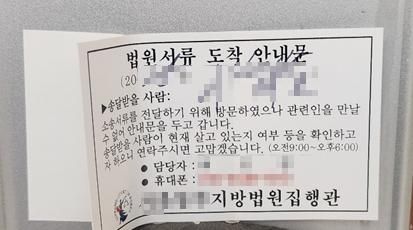 법원서류 도착 안내문
(20
▶송달받을 사람:
소송서류를 전달하기 위해 방문하였으나 관련인을 만날
수 없어 안내문을 두고 갑니다.
송달받을 사람이 현재 살고 있는지 여부 등을 확인하고
자 하오니 연락주시면 고맙겠습니다. (오전9:00~오후6:00)
● 담당자 :
● 휴대폰 :
지방법원집행관